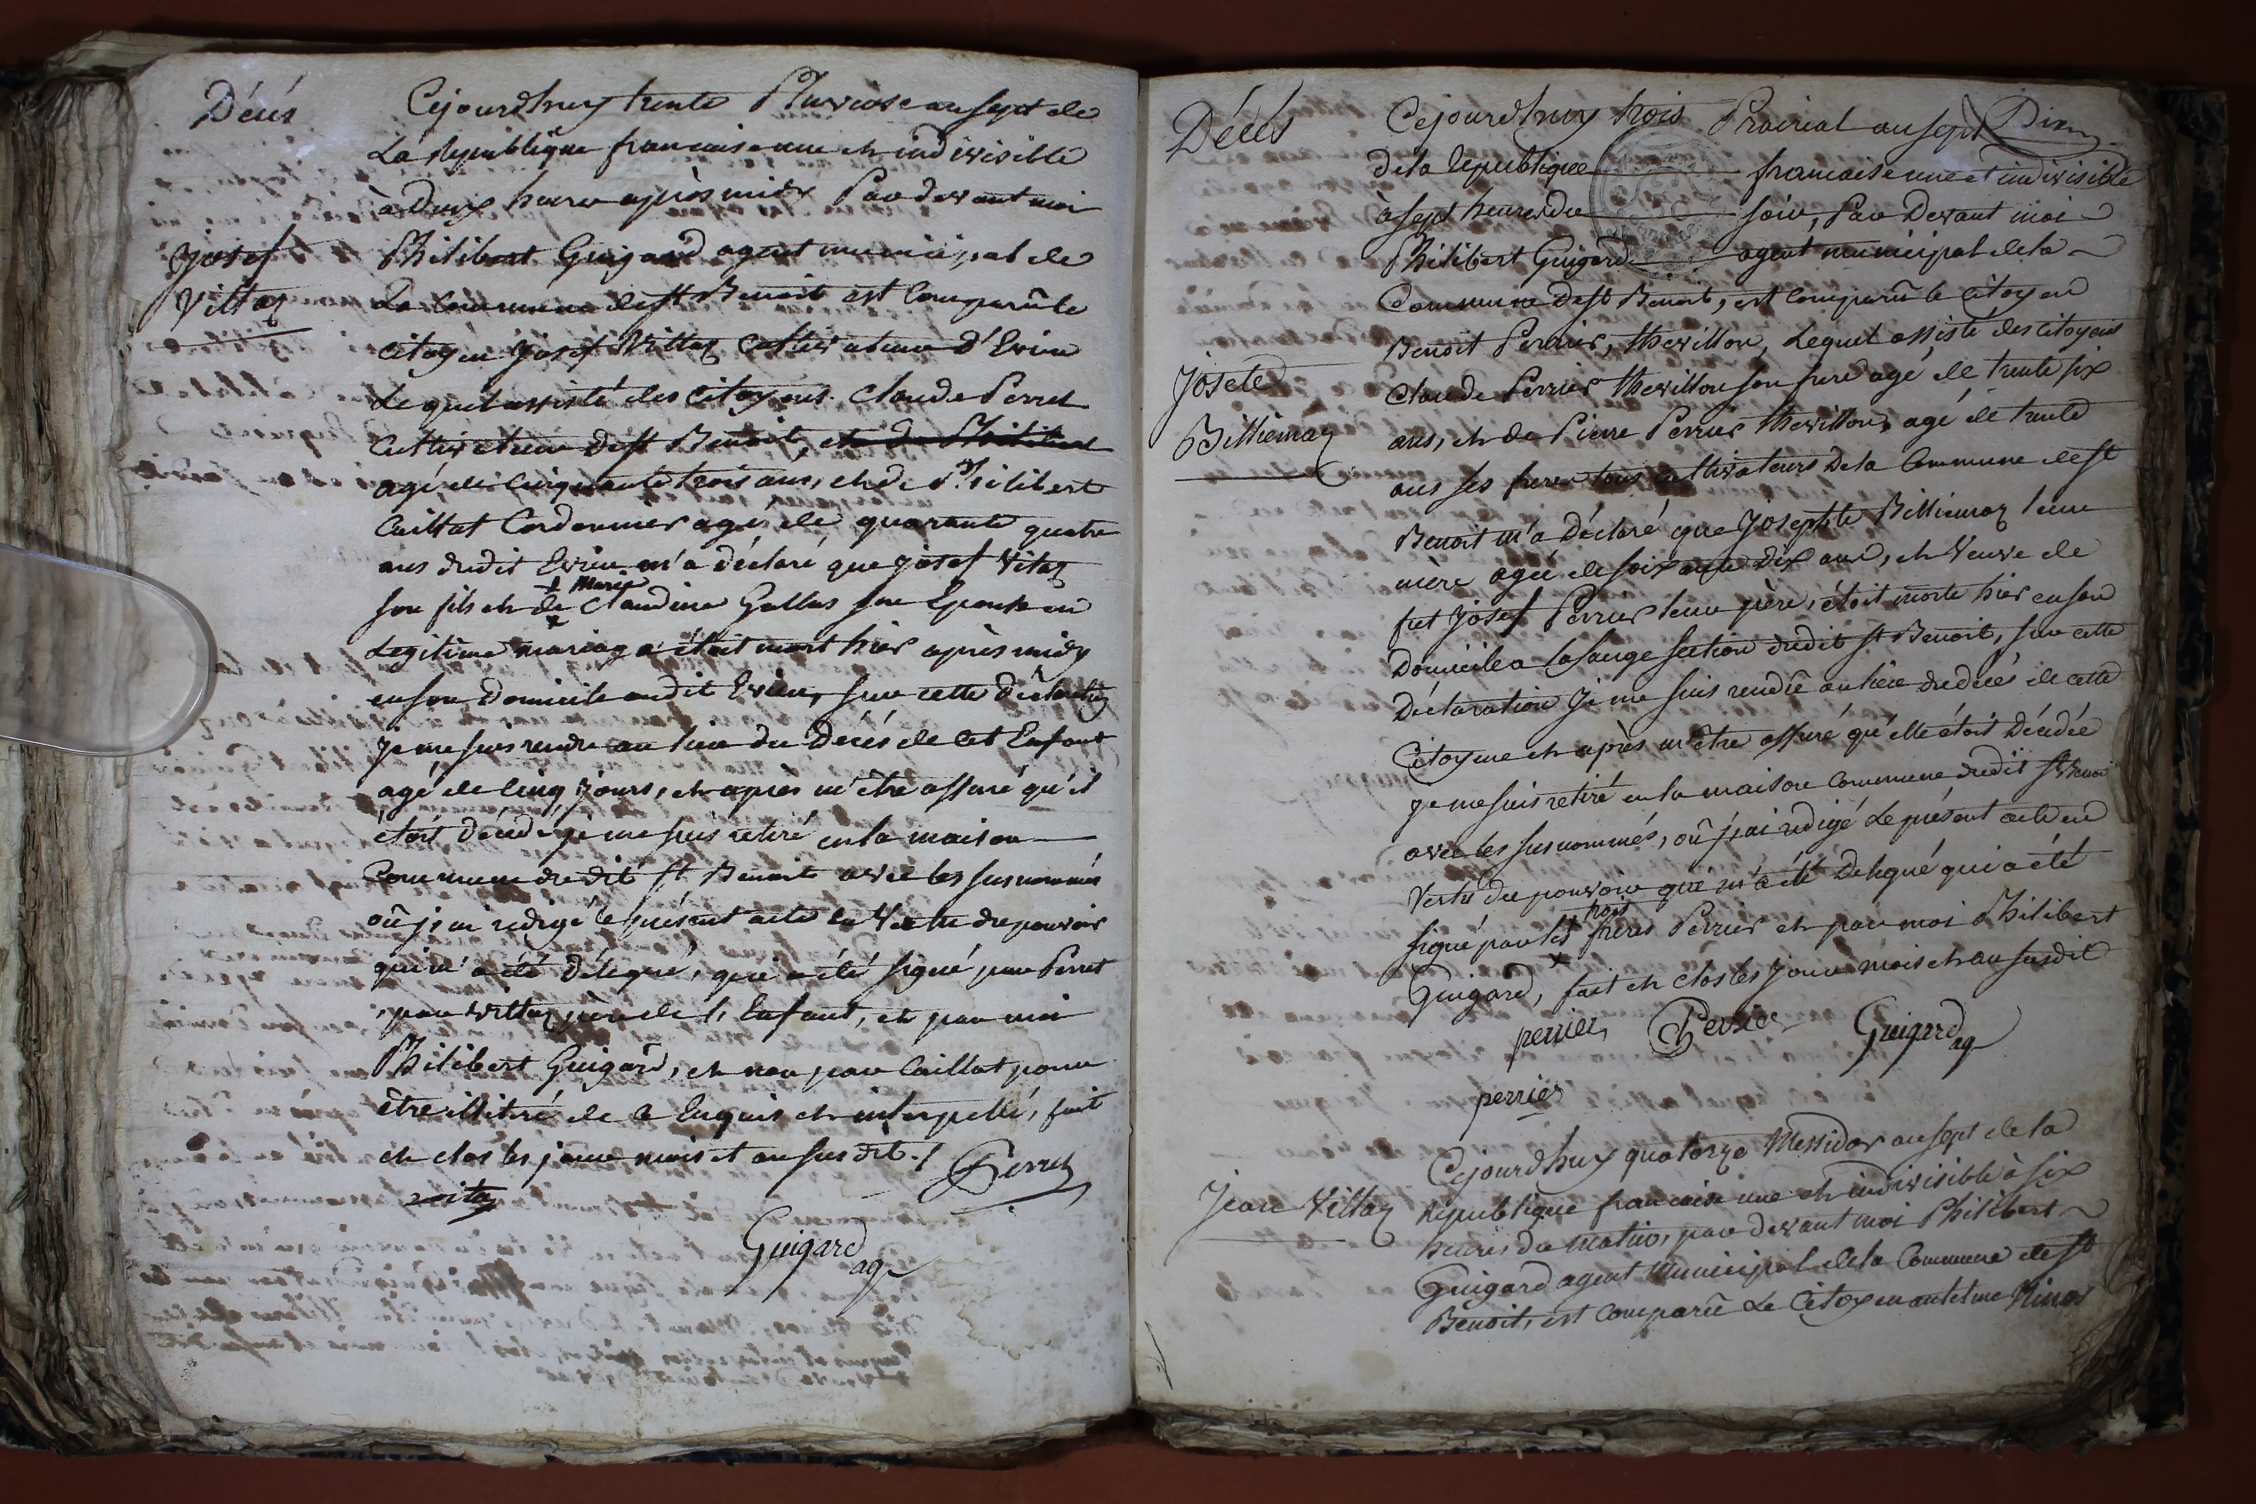 Décés
Cejourdhuy trente Pluviose an sept de
La Republique francaise une et indivisible
à deux heures après midy Par devant moi
Josef
Villaz
Philibert Guigard agent municipal de
La Commune de st Benoit est comparû le
citoyen Josef Villaz Cultivateur d'Evieu
Lequel assisté des citoyens Claude Perret
Cultivateur de st Benoit, et de Philibert
agé de cinquante trois ans, et de Philibert
Caillat Cordonnier agé de quarante quatre
ans dudit Evieu m'a déclaré que Josef Vitaz
+ Marie
son fils et de Claudine Gallas son Epouse en
Legitime mariage étoit mort hier après midy
en son Domicile audit Evieu, sur cette déclaration
je me suis rendu au lieu du Décés de cet Enfant
agé de cinq jours, et après m'être assuré qu'il
étoit décédé je me suis retiré en la maison
Commune dudit st Benoit avec les susnommés
où j'ai redigé le présent acte en Vertu du pouvoir
qui m'a été délegué, qui a été signé par Perret
, par Villaz père de l'Enfant, et par moi
Philibert Guigard, et non par Caillat pour
être illitéré de ce Enquis et interpellé, fait
et clos les jour mois et an susdit ./
vitaz
Perret
Guigard
ag
Décés
Cejourdhuy trois Prairial an sept Dix
de la republique francaise une et indivisible
à sept heures du soir, Par Devant moi
Philibert Guigard agent municipal de la
Commune de st Benoit, est comparû le citoyen
Benoit Perrier, thevillon, Lequel assisté des citoyens
Josete
Billiemaz
Claude Perrier thevillon son frere agé de trente six
ans, et de Pierre Perrier thevillon, agé de trente
ans ses freres tous cultivateurs de la Commune de st
Benoit m'a Déclaré que Josephte Billiemaz leur
mère agée de soixante dix ans, et Veuve de
fut Josef Perrier leur père, étoit morte hier en son
Domicile a la Sauge section dudit st Benoit, sur cette
Déclaration Je me suis rendû au lieu du decés de cette
Citoyene et après m'être assuré qu'elle étoit Décédée
je me suis retiré en la maison commune dudit st Benoit
avec les susnommés, où j'ai redigé Le présent acte en
Vertu du pouvoir qui m'a été Delegué qui a été
trois
signé par les freres Perrier et par moi Philibert
Guigard, fait et clos les jour mois et an susdit
perrier Perrier Guigard
ag
perrier
Cejourdhuy quatorze Messidor an sept de la
Jean Villaz
republique francaise une et indivisible à six
heures du matin, par devant moi Philibert
Guigard agent municipal de la Commune de st
Benoit, est comparû Le Citoyen antelme